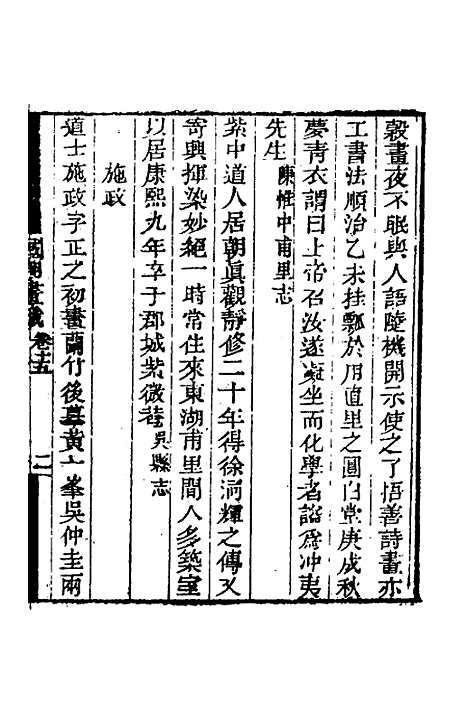 穀晝夜不眠與人語隨機開示使之了悟善詩畫亦
工書法順治乙未挂瓢於甪直里之圓白堂庚戌秋
夢青衣謂曰上帝召汝遂凝坐而化學者諡爲冲夷
先生陳惟中甫里志
紫中道人居朝眞觀靜修二十年得徐泂輝之傳又
寄興揮染妙絕一時常往來東湖甫里間人多築室
以居康熙九年卒于郡城紫微菴吳縣志
施政
道士施政字正之初畫蘭竹後摹黃一峯吳仲圭兩
國朝畫識 卷十五 二